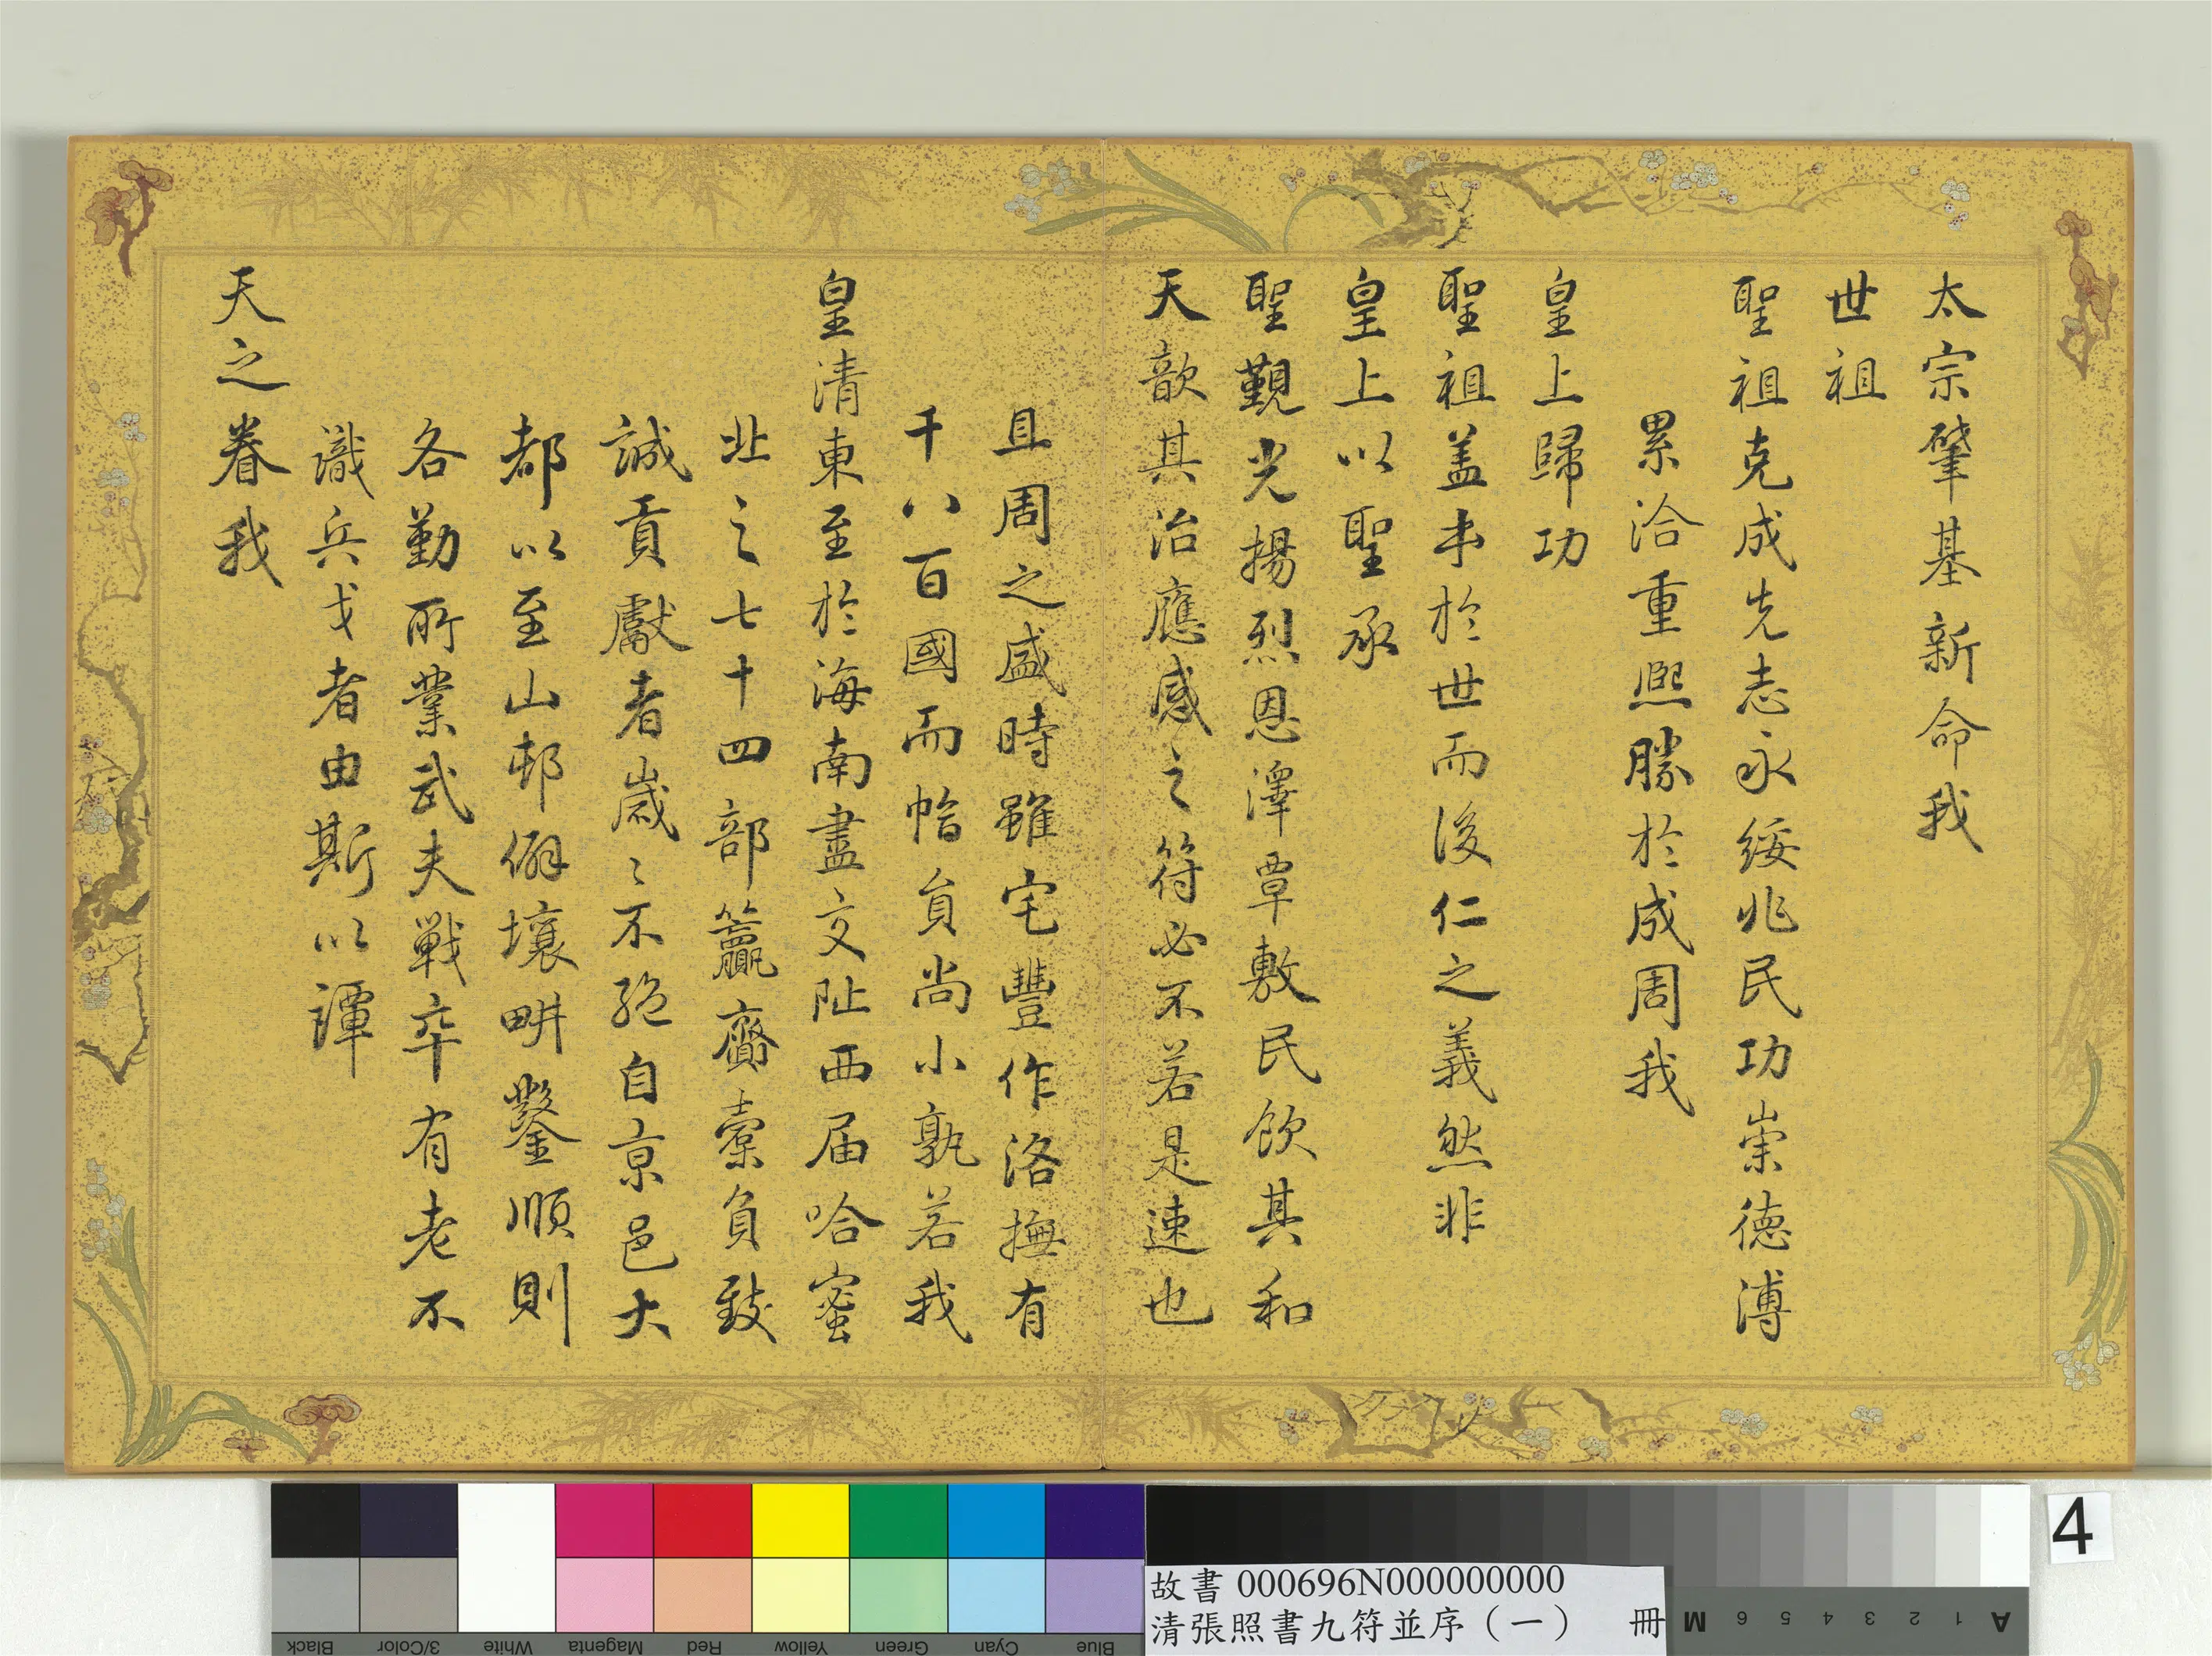 太宗肇基新命我
世祖
聖祖克成先志永綏兆民功崇德溥
累洽重熙勝於成周我
皇上歸功
聖祖蓋本於世而後仁之義然非
皇上以聖承
聖覲光揚烈恩澤覃敷民飲其和
天歆其治應感之符必不若是速也
且周之盛時雖宅豐作洛撫有
千八百國而幅員尚小孰若我
皇清東至於海南盡交阯西届哈蜜
北之七十四部籯齎橐負致
誠貢獻者歲〻不絕自京邑大
都以至山邨僻壤畊鑿順則
各勤所業武夫戰卒有老不
識兵戈者由斯以譚
天之眷我
4
故書 000696N000000000
清張照書九符並序（一） 冊
Black
3/Color
White
Magenta
Red
Yellow
Green
Cyan
Blue
A 1 2 3 4 5 6 M